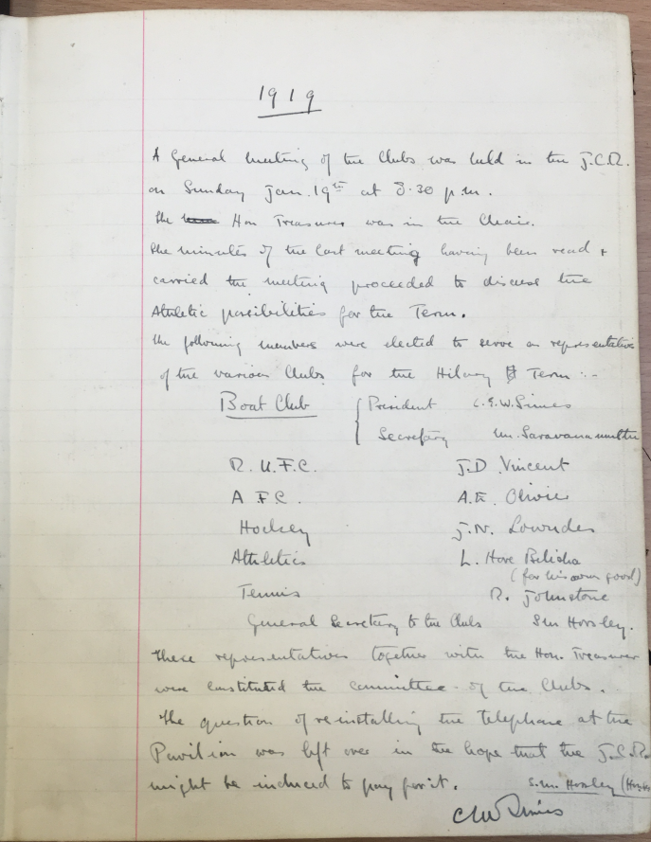 1919
A General Meeting of the Clubs was held in the J.C.R.
on Sunday Jan. 19th at 8.30 p.m.
The Hon Treasurer was in the Chair.
The minutes of the last meeting having been read +
carried the meeting proceeded to discuss the
Athletic possibilities for the Term.
The following members were elected to serve as representatives
of the various Clubs for the Hilary Term :-
Boat Club { President C.E.W. Simes
Secretary M. Saravanamuttu
R.U.F.C. J.D. Vincent
A F C. A.E. Olivier
Hockey J.N. Lowndes
Athletics L. Hore Belisha
(for his own good)
Tennis R. Johnstone
General Secretary to the Clubs S.M. Horsley.
These representatives together with the Hon. Treasurer
were constituted the committee of the Clubs.
The question of reinstalling the Telephone at the
Pavilion was left over in the hope that the J.C.R.
might be induced to pay for it. S.M. Horsley